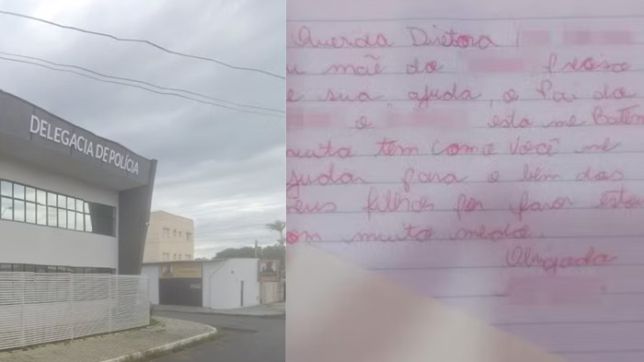 DELEGACIA DE POLÍCIA
Querida Diretora
u mãe do preso
e sua ajuda, o Pai do
e esta me Baten
uita tem como você me
judar para o bem dos
eus filhos por favor estou
om muito medo.
Obrigada